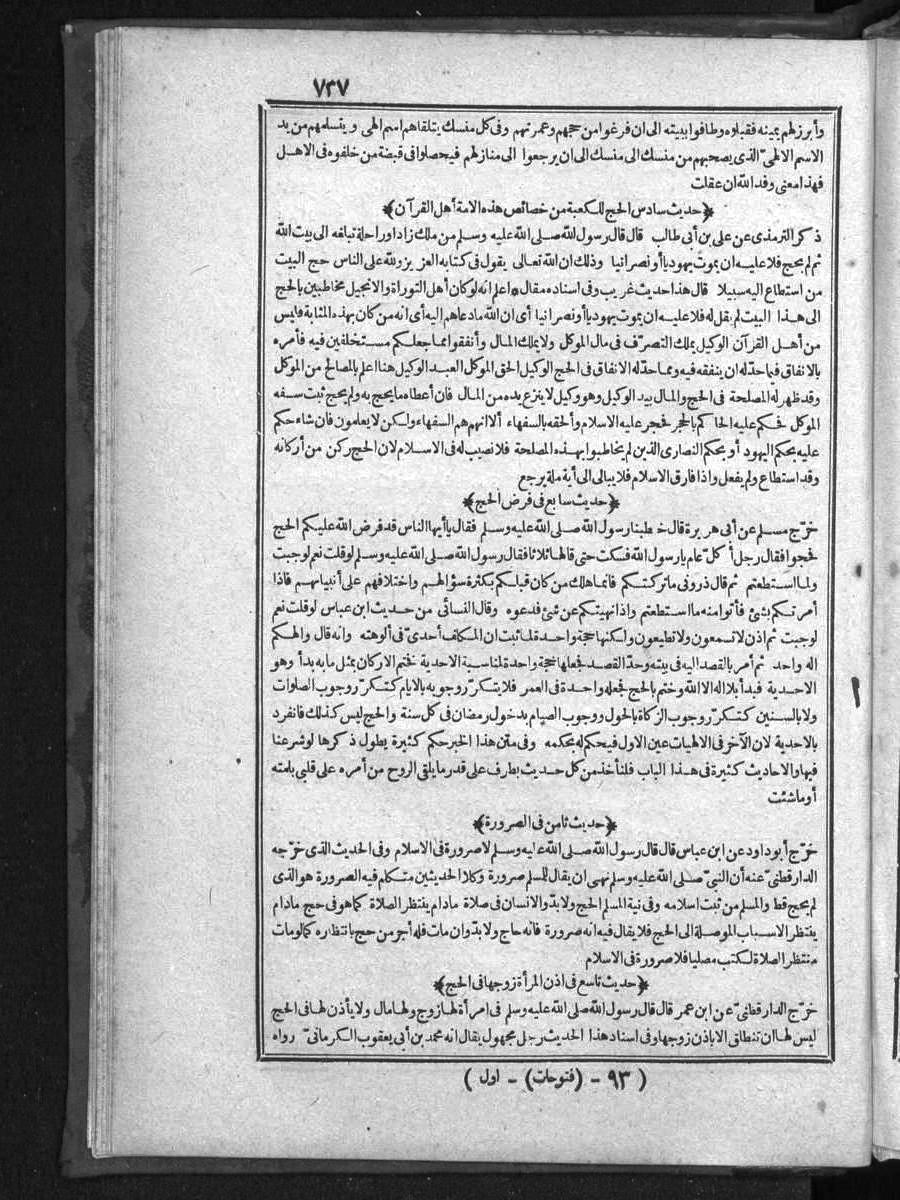 ٧٣٧
وأبرز لهم يمينه فقبلوه وطافوا ببيته الى ان فرغوا من حجهم وعمرتهم وفى كل منسك يتلقاهم اسم الهى ويتسلمهم من يد
الاسم الالهىّ الذى يصحبهم من منسك الى منسك الى ان يرجعوا الى منازلهم فيحصلوا فى قبضة من خلفوه فى الاهل
فهذا معنى وفد الله ان عقلت
﴿حديث سادس الحج للكعبة من خصائص هذه الامة أهل القرآن﴾
ذكر الترمذى عن على بن أبى طالب قال قال رسول الله صلى الله عليه وسلم من ملك زادا وراحلة تبلغه الى بيت الله
ثم لم يحج فلا عليه ان يموت يهوديا أو نصرانيا وذلك ان الله تعالى يقول فى كتابه العزيز ولله على الناس حج البيت
من استطاع اليه سبيلا قال هذا حديث غريب وفى اسناده مقال * اعلم انه لو كان أهل التوراة والانجيل مخاطبين بالحج
الى هذا البيت لم يقل له فلا عليه ان يموت يهوديا أو نصرانيا أى ان الله ما دعاهم اليه أى انه من كان بهذه المثابة فليس
من أهل القرآن الوكيل يملك التصرّف فى مال الموكل ولا يملك المال وأنفقوا مما جعلكم مستخلفين فيه فأمره
بالانفاق فيما حدّ له ان ينفقه فيه ومما حدّ له الانفاق فى الحج الوكيل الحق الموكل العبد الوكيل هنا اعلم بالمصالح من الموكل
وقد ظهر له المصلحة فى الحج والمال بيد الوكيل وهو وكيل لا ينزع يده من المال فان أعطاه ما يحج به ولم يحج ثبت سفه
الموكل فحكم عليه الحاكم بالحجر فحجر عليه الاسلام وألحقه بالسفهاء ألا انهم هم السفهاء ولكن لا يعلمون فان شاء حكم
عليه بحكم اليهود أو بحكم النصارى الذين لم يخاطبوا بهذه المصلحة فلا نصيب له فى الاسلام لان الحج ركن من أركانه
وقد استطاع ولم يفعل واذا فارق الاسلام فلا يبالى الى أية ملة يرجع
﴿حديث سابع فى فرض الحج﴾
خرّج مسلم عن أبى هريرة قال خطبنا رسول الله صلى الله عليه وسلم فقال يا أيها الناس قد فرض الله عليكم الحج
فحجوا فقال رجل أكلّ عام يا رسول الله فسكت حتى قالها ثلاثا فقال رسول الله صلى الله عليه وسلم لو قلت نعم لوجبت
ولما استطعتم ثم قال ذرونى ما تركتكم فانما هلك من كان قبلكم بكثرة سؤالهم واختلافهم على أنبيائهم فاذا
أمرتكم بشئ فأتوا منه ما استطعتم واذا نهيتكم عن شئ فدعوه وقال النسائى من حديث ابن عباس لو قلت نعم
لوجبت ثم اذن لا تسمعون ولا تطيعون ولكنها حجة واحدة لما ثبت ان المكلف أحدىّ فى ألوهته وانه قال والهكم
اله واحد ثم أمر بالقصد اليه فى بيته وحدّ القصد فجعلها حجة واحدة لمناسبة الاحدية ختم الاركان بمثل ما به بدأ وهو
الاحدية فبدأ بلا اله الا الله وختم بالحج فجعله واحدة فى العمر فلا يتكرّر وجوبه بالايام كتكرّر وجوب الصلوات
ولا بالسنين كتكرّر وجوب الزكاة بالحول ووجوب الصيام بدخول رمضان فى كل سنة والحج ليس كذلك فانفرد
بالاحدية لان الآخر فى الالهيات عين الاول فيحكم له بحكمه وفى متن هذا الخبر حكم كثيرة يطول ذكرها لو شرعنا
فيها والاحاديث كثيرة فى هذا الباب فلنأخذ من كل حديث بطرف على قدر ما يلقى الروح من أمره على قلبى بلمته
أو ما شئت
﴿حديث ثامن فى الصرورة﴾
خرّج أبو داود عن ابن عباس قال قال رسول الله صلى الله عليه وسلم لا صرورة فى الاسلام وفى الحديث الذى خرّجه
الدارقطنىّ عنه أن النبىّ صلى الله عليه وسلم نهى ان يقال للمسلم صرورة وكلا الحديثين متكلم فيه الصرورة هو الذى
لم يحج قط والمسلم من ثبت اسلامه وفى نية المسلم الحج ولا بدّ والانسان فى صلاة ما دام ينتظر الصلاة كما هو فى حج ما دام
ينتظر الاسباب الموصلة الى الحج فلا يقال فيه انه صرورة فانه حاج ولا بدّ وان مات فله أجر من حج بانتظاره كما لو مات
منتظر الصلاة لكتب مصليا فلا صرورة فى الاسلام
﴿حديث تاسع فى اذن المرأة زوجها فى الحج﴾
خرّج الدارقطنىّ عن ابن عمر قال قال رسول الله صلى الله عليه وسلم فى امرأة لها زوج ولها مال ولا يأذن لها فى الحج
ليس لها ان تنطلق الا باذن زوجها وفى اسناد هذا الحديث رجل مجهول يقال انه محمد بن أبى يعقوب الكرمانىّ رواه
( ٩٣ - (فتوحات) - اول )